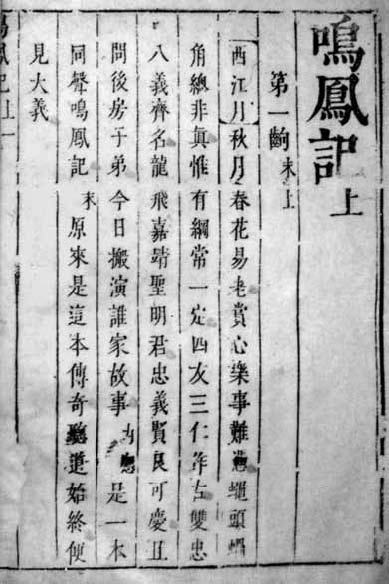 鳴鳳記 上
第一齣 末上
[西江月]秋月春花易老賞心樂事難憑蠅頭蝸
角總非真惟有綱常一定四友三仁作古雙忠
八義齊名龍飛嘉靖聖明君忠義賢良可慶且
問後房子弟今日搬演誰家故事 内應 是一本
同聲鳴鳳記 末 原來是這本傳奇聽道始終便
見大義
鳳記上 一